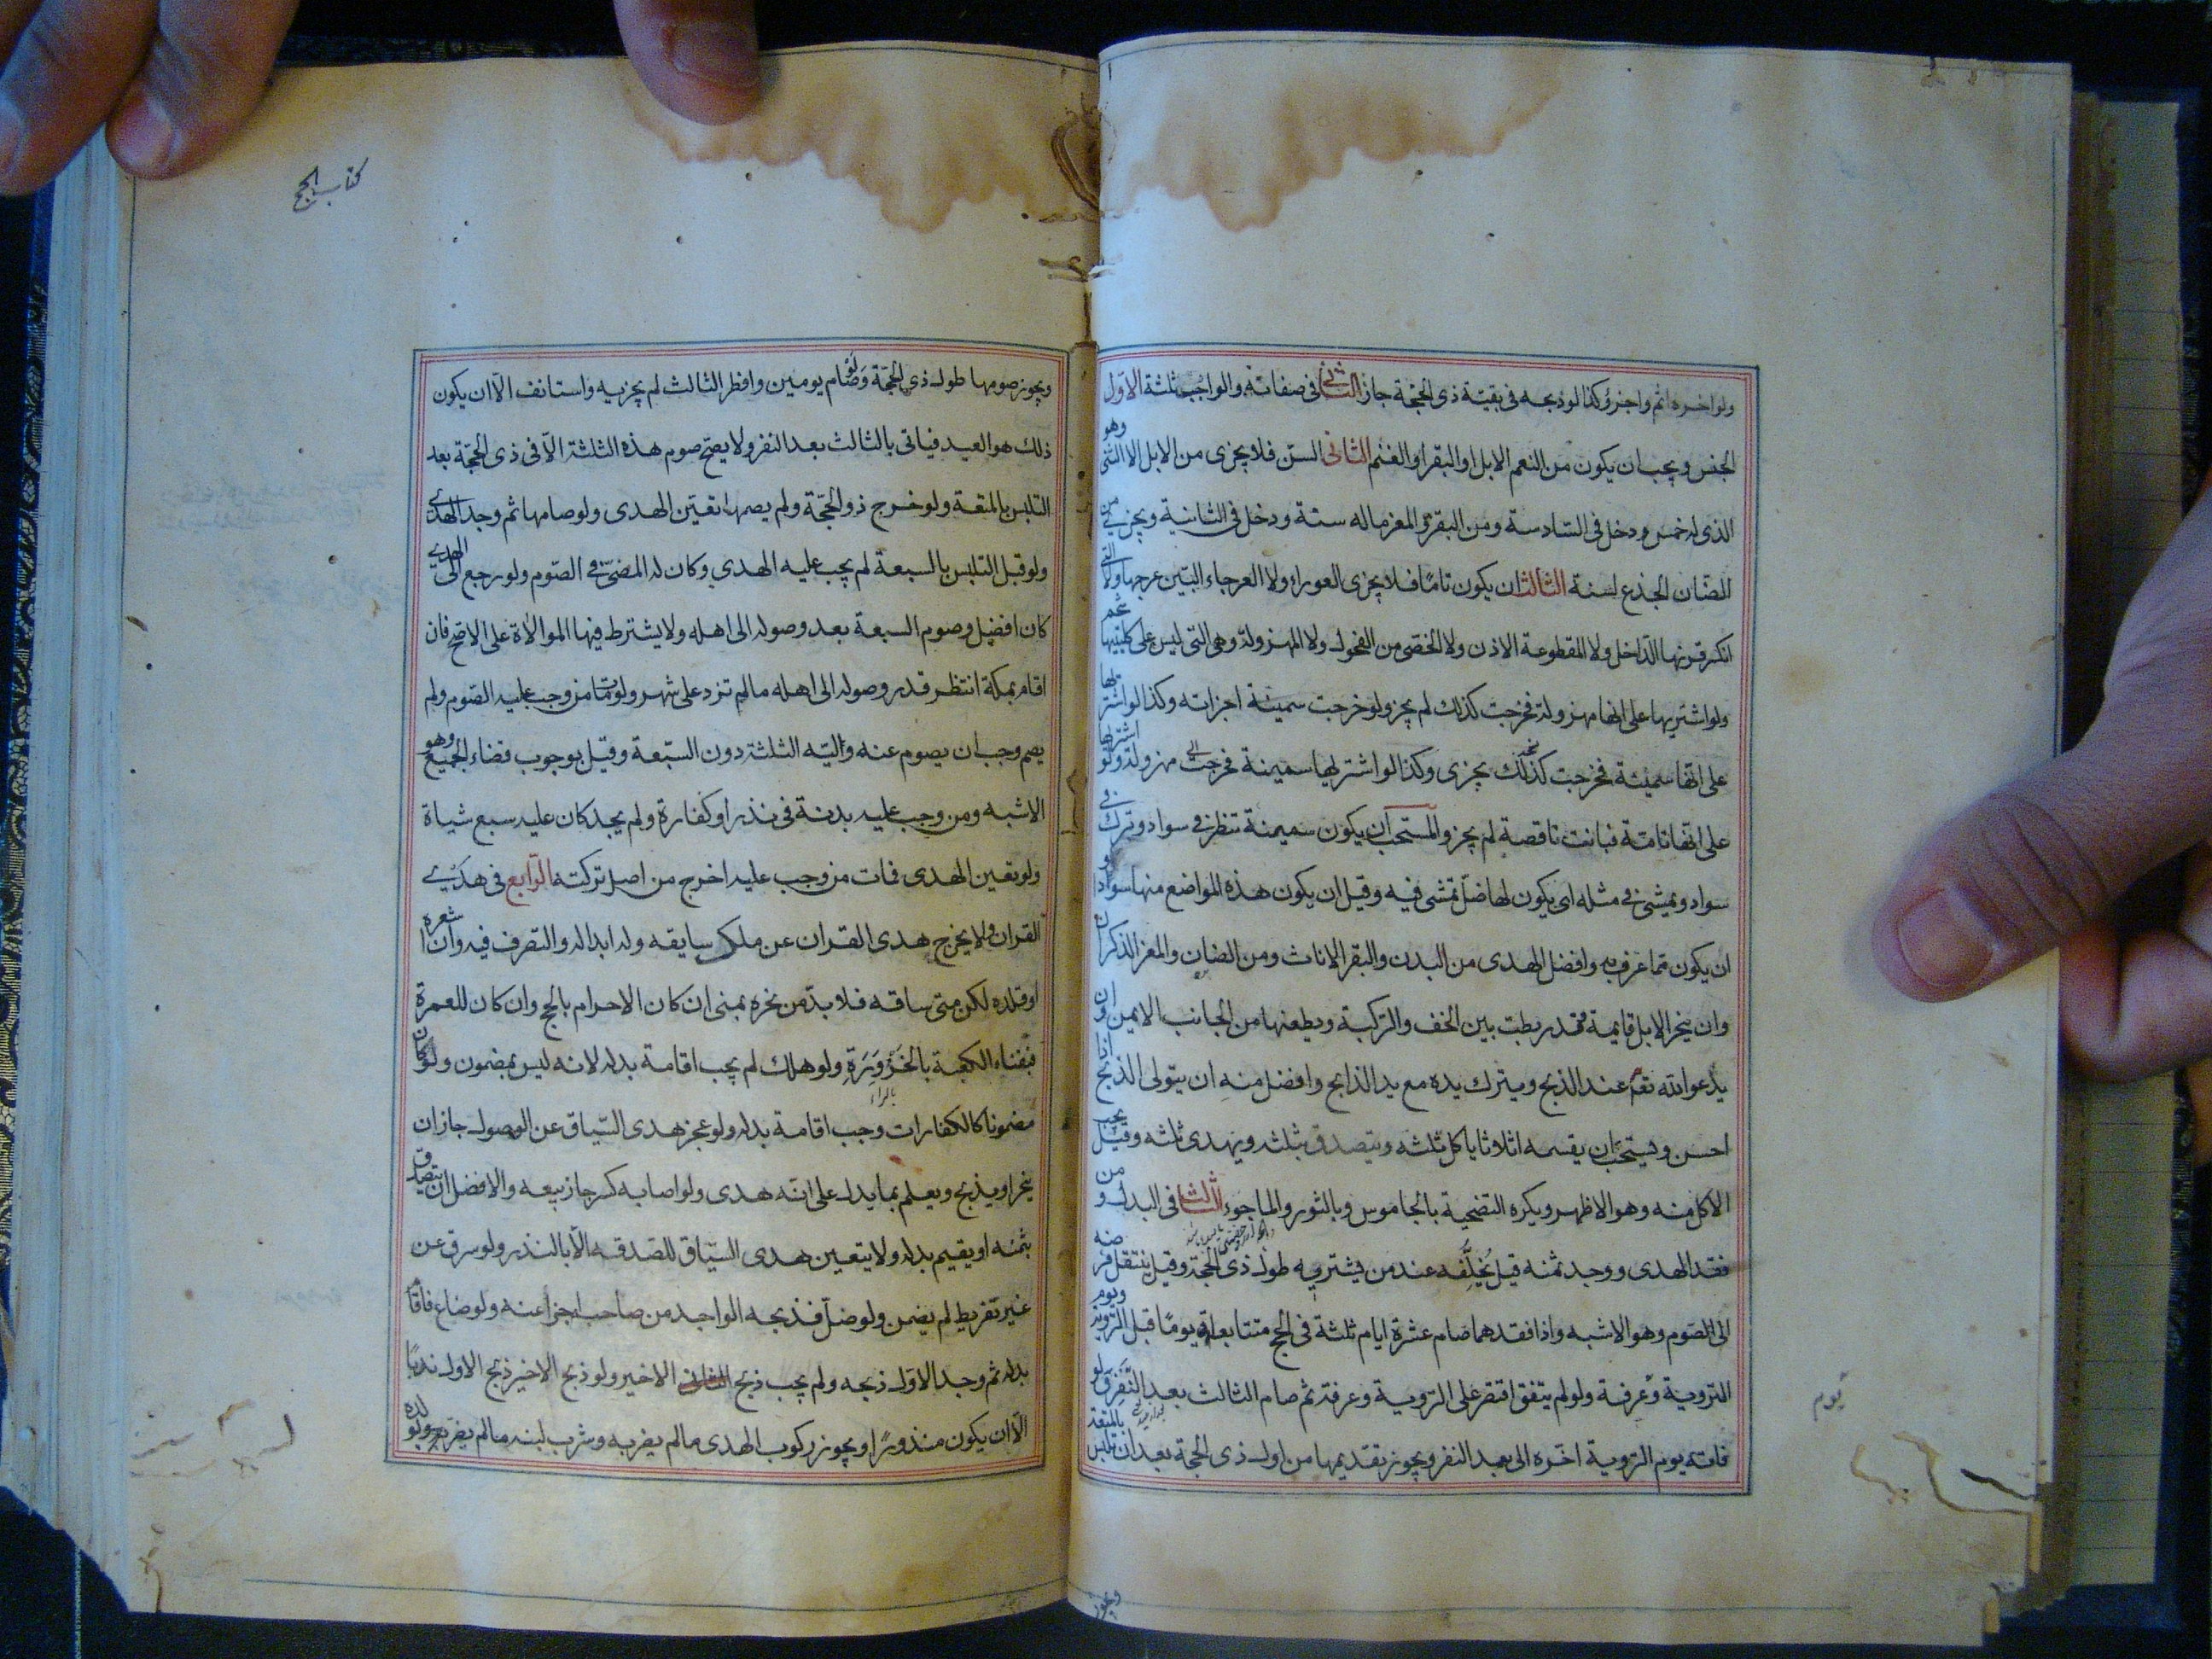 ولو اخره اثم واجزء وكذا لو ذبحه فى بقية ذى الحجة جاز الثانى فى صفاته والواجب ثلثة الاول
الجنس ويجب ان يكون من النعم الابل او البقر او الغنم الثانى السن فلا يجزى من الابل الا الثنى وهو
الذى له خمس ودخل فى السادسة ومن البقر والمعز ماله سنة ودخل فى الثانية ويجزى من
الضان الجذع لسنة الثالث ان يكون تاما فلا يجزى العوراء ولا العرجاء البين عرجها ولا التى
انكسر قرنها الداخل ولا المقطوعة الاذن ولا الخصى من الفحول ولا المهزولة وهى التى ليس على كليتيها شحم
ولو اشتريها على انها مهزولة فخرجت كذلك لم يجز ولو خرجت سمينة اجزاته وكذا لو اشتراها
على انها سمينة فخرجت كذلك يجزى وكذا لو اشتريها سمينة فخرجت مهزولة ولو اشتراها
على انها تامة فبانت ناقصة لم يجز والمستحب ان يكون سمينة تنظر فى سواد وتبرك فى
سواد ويمشى فى مثله اى يكون لها ضل تمشى فيه وقيل ان يكون هذه المواضع منها سوادا و
ان يكون مما عرف به وافضل الهدى من البدن والبقر الاناث ومن الضان والمعز الذكران
وان ينحر الابل قايمة قد ربطت بين الخف والركبة ويطعنها من الجانب الايمن وان
يدعو الله تعم عند الذبح ويترك يده مع يد الذابح وافضل منه ان يتولى الذبح اذا
احسن ويستحب ان يقسمه اثلاثا ياكل ثلثه ويتصدق بثلثه ويهدى ثلثه وقيل يجب
الاكل منه وهو الاظهر ويكره التضحية بالجاموس وبالثور والماجوء الثالث فى البدل و من
فقد الهدى ووجد ثمنه قيل يخلفه عند من يشتريه طول ذى الحجة وقيل ينتقل فرضه
الى الصوم وهو الاشبه واذا فقدهما صام عشرة ايام ثلثة فى الحج متتابعات يوما قبل التروية ويوم
التروية وعرفة ولو لم يتفق اقتصر على التروية وعرفة ثم صام الثالث بعد النفر ولو
فاته يوم التروية اخره الى بعد النفر ويجوز تقديمها من اول ذى الحجة بعد ان تلبس بالمتعة
يوم
ويجوز
كتاب الحج
ويجوز صومها طول ذى الحجة ولو صام يومين وافطر الثالث لم يجزيه واستانف الا ان يكون
ذلك هو العيد فياتى بالثالث بعد النفر ولا يصح صوم هذه الثلثة الا فى ذى الحجة بعد
التلبس بالمتعة ولو خرج ذو الحجة ولم يصمها تعين الهدى ولو صامها ثم وجد الهدى
ولو قبل التلبس بالسبعة لم يجب عليه الهدى وكان له المضى فى الصوم ولو رجع الى الهدى
كان افضل وصوم السبعة بعد وصوله الى اهله ولا يشترط فيها الموالاة على الاصح فان
اقام بمكة انتظر قدر وصوله الى اهله مالم تزد على شهر ولو مات من وجب عليه الصوم ولم
يصم وجب ان يصوم عنه وليه الثلثة دون السبعة وقيل بوجوب قضاء الجميع وهو
الاشبه ومن وجب عليه بدنة فى نذر او كفارة ولم يجد كان عليه سبع شياة
ولو تعين الهدى فمات من وجب عليه اخرج من اصل تركته الرابع فى هدى
القران ولا يخرج هدى القران عن ملك سايقه وله ابداله والتصرف فيه وان اشعره
او قلده لكن متى ساقه فلا بد من نحره بمنى ان كان الاحرام بالحج وان كان للعمرة
فبفناء الكعبة بالحزورة ولو هلك لم يجب اقامة بدله لانه ليس بمضمون ولو كان
مضمونا كالكفارات وجب اقامة بدله ولو عجز هدى السياق عن الوصول جاز ان
ينحر او يذبح ويعلم بما يدل على انه هدى ولو اصابه كسر جاز بيعه والافضل ان يتصدق
بثمنه او يقيم بدله ولا يتعين هدى السياق للصدقه الا بالنذر ولو سرق عن
غير تفريط لم يضمن ولو ضل فذبحه الواجد من صاحبه اجزا عنه ولو ضاع فاقام
بدله ثم وجد الاول ذبحه ولم يجب ذبح الاخير ولو ذبح الاخير ذبح الاول ندبا
الا ان يكون منذورا ويجوز ركوب الهدى مالم يضر به وشرب لبنه مالم يضر بولده